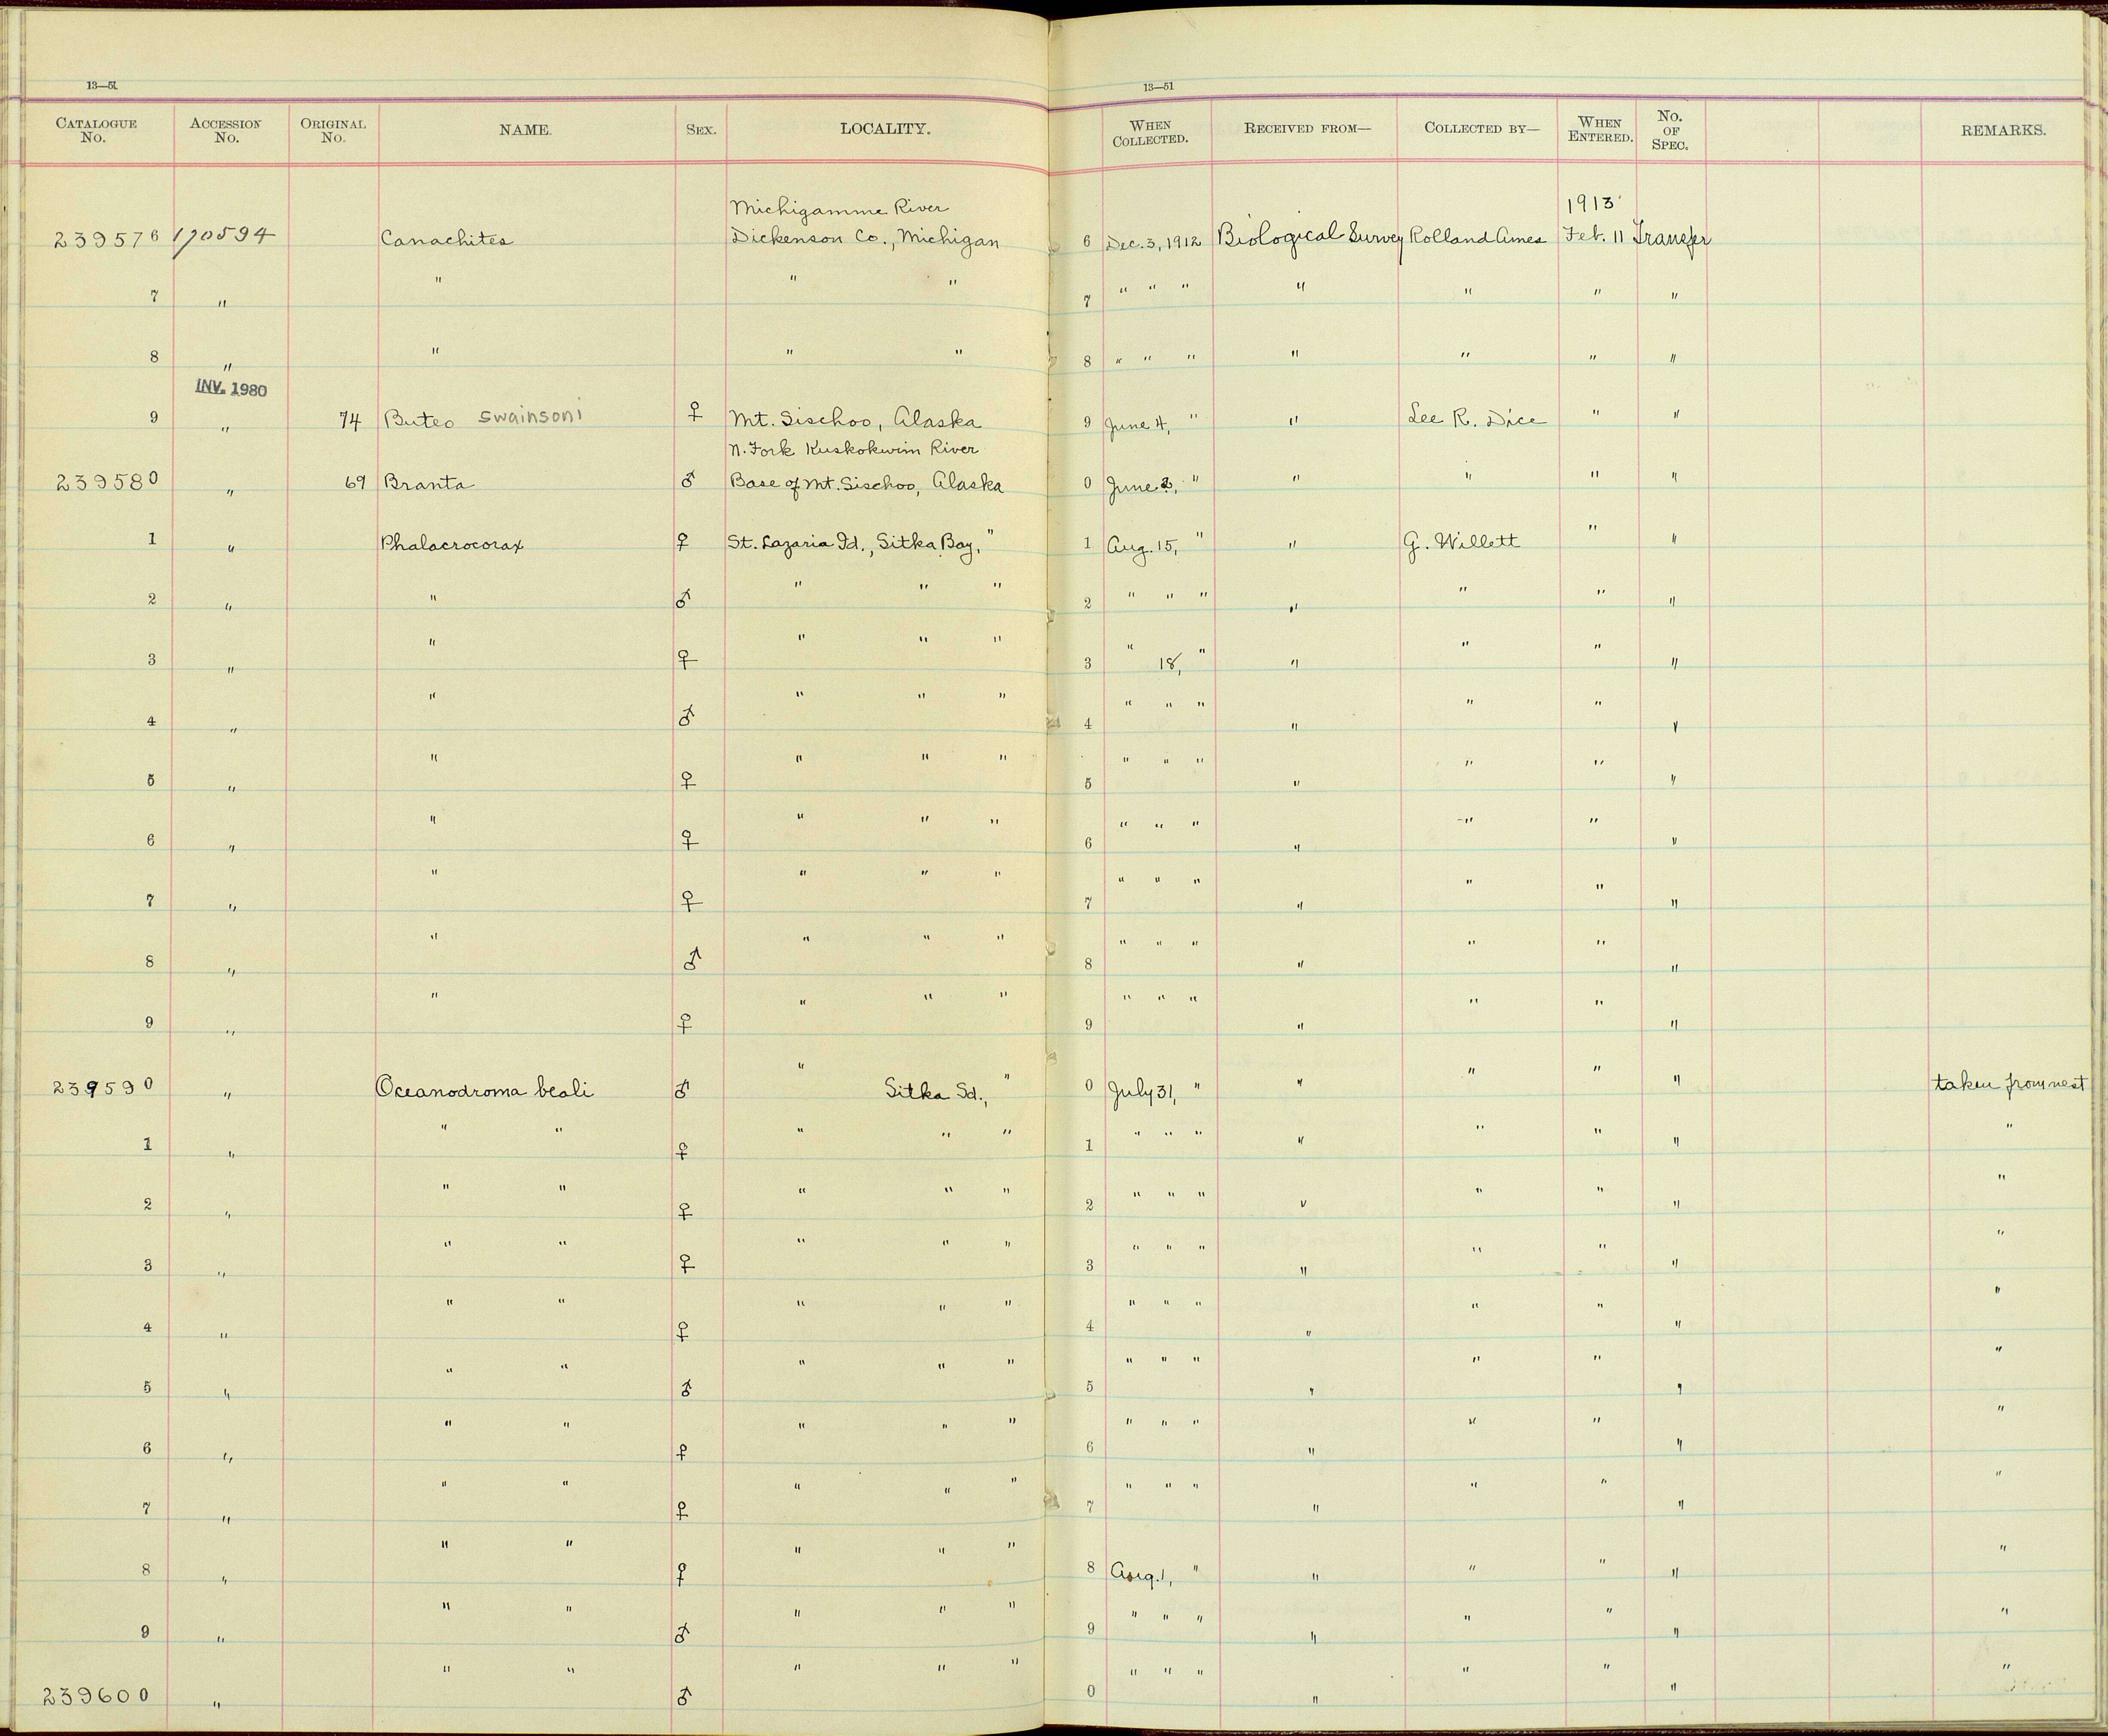 13—51 13—51
CATALOGUE No. ACCESSION No. ORIGINAL No. NAME. SEX. LOCALITY. WHEN COLLECTED. RECEIVED FROM— COLLECTED BY— WHEN ENTERED. No. OF SPEC. REMARKS.
Michigamme River 1913
239576 170594 Canachites Dickenson Co., Michigan 6 Dec. 3, 1912 Biological Survey Rolland Ames Feb. 11 Transfer
7 " " " " 7 " " " " " " "
8 " " " " 8 " " " " " " "
INV. 1980
9 " 74 Buteo swainsoni ♀ Mt. Sischoo, Alaska 9 June 4, " " Lee R. Dice " "
N. Fork Kuskokwim River
239580 " 69 Branta ♂ Base of Mt. Sischoo, Alaska 0 June 2, " " " " "
1 " Phalacrocorax ♀ St. Lazaria Id., Sitka Bay, " 1 Aug. 15, " " G. Willett " "
2 " " ♂ " " " 2 " " " " " " "
3 " " ♀ " " " 3 " 18, " " " " "
4 " " ♂ " " " 4 " " " " " " "
5 " " ♀ " " " 5 " " " " " " "
6 " " ♀ " " " 6 " " " " " " "
7 " " ♀ " " " 7 " " " " " " "
8 " " ♂ " " " 8 " " " " " " "
9 " " ♀ " " " 9 " " " " " " "
239590 " Oceanodroma beali ♂ " Sitka Sd., " 0 July 31, " " " " " taken from nest
1 " " " ♀ " " " 1 " " " " " " " "
2 " " " ♀ " " " 2 " " " " " " " "
3 " " " ♀ " " " 3 " " " " " " " "
4 " " " ♀ " " " 4 " " " " " " " "
5 " " " ♂ " " " 5 " " " " " " " "
6 " " " ♀ " " " 6 " " " " " " " "
7 " " " ♀ " " " 7 " " " " " " " "
8 " " " ♀ " " " 8 Aug. 1, " " " " " "
9 " " " ♂ " " " 9 " " " " " " " "
239600 " " " ♂ " " " 0 " " " " " " " "